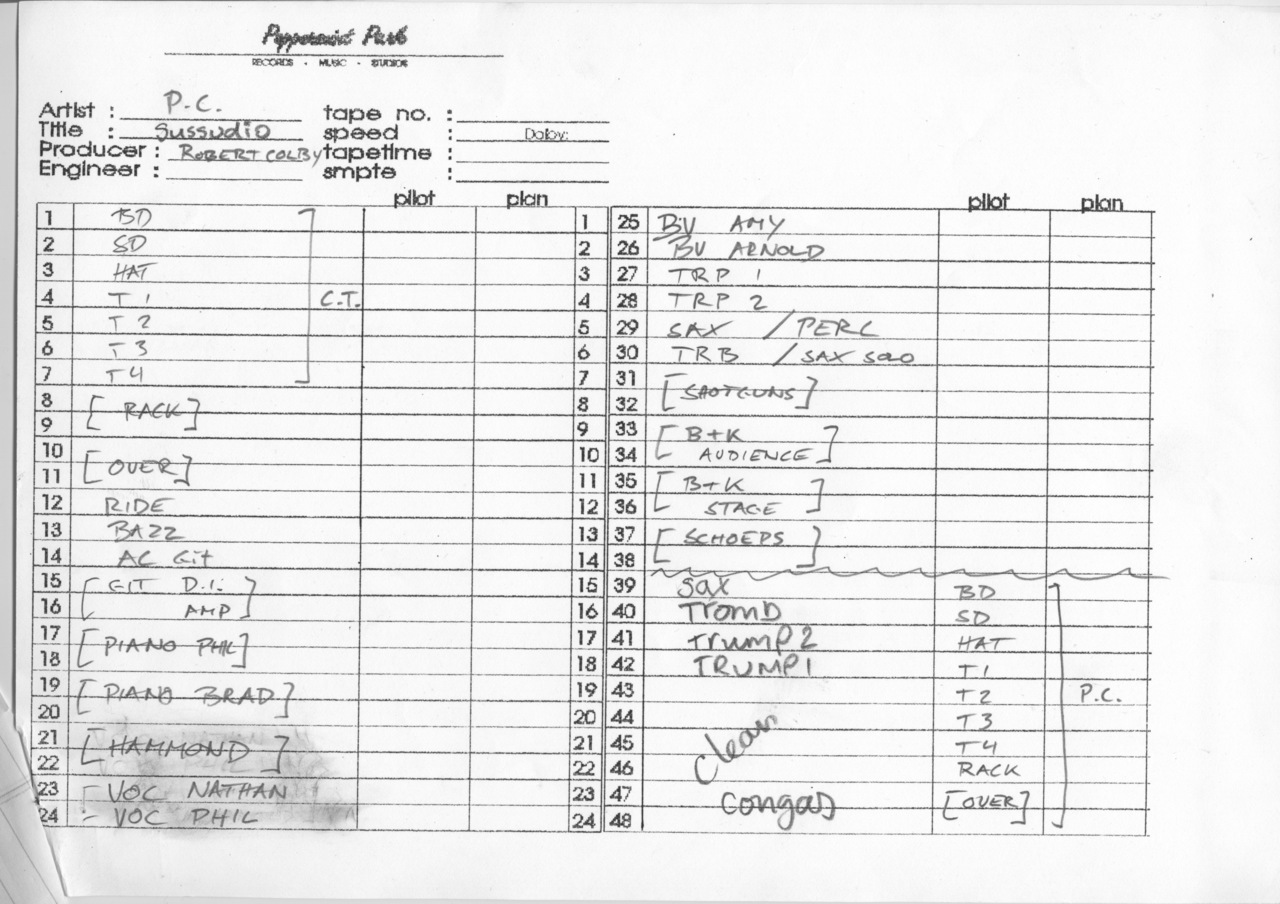 Peppermint Park
RECORDS · MUSIC · STUDIOS
Artist : P.C. tape no. :
Title : Sussudio speed : Dolby:
Producer : ROBERT COLBY tapetime :
Engineer : smpte :
pilot plan pilot plan
1 BD 1 25 BV AMY
2 SD 2 26 BV ARNOLD
3 HAT 3 27 TRP 1
4 T 1 C.T. 4 28 TRP 2
5 T 2 5 29 SAX / PERC
6 T 3 6 30 TRB / SAX SOLO
7 T4 7 31 [SHOTGUNS]
8 [RACK] 8 32
9 9 33 [B+K
10 [OVER] 10 34 AUDIENCE]
11 11 35 [B+K
12 RIDE 12 36 STAGE]
13 BAZZ 13 37 [SCHOEPS]
14 AC Git 14 38
15 [GIT D.I. 15 39 Sax BD
16 AMP] 16 40 TromB SD
17 [PIANO PHIL] 17 41 Trump 2 HAT
18 18 42 TRUMP 1 T1
19 [PIANO BRAD] 19 43 T2 P.C.
20 20 44 T3
21 [HAMMOND] 21 45 clean T4
22 22 46 RACK
23 VOC NATHAN 23 47 congas [OVER]
24 VOC PHIL 24 48